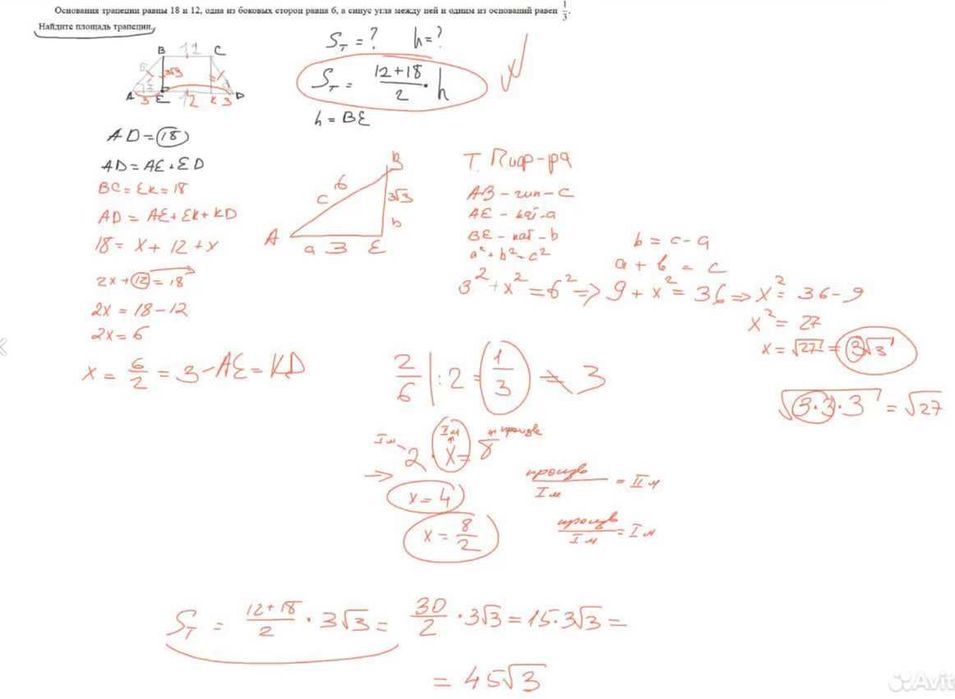 Основания трапеции равны 18 и 12, одна из боковых сторон равна 6, а синус угла между ней и одним из оснований равен 1/3.
Найдите площадь трапеции.
B 12 C
6 3√3
A 3 E 12 K 3 D
S_T = ? h = ?
S_T = (12+18)/2 · h
h = BE
AD = 18
AD = AE + ED
BC = EK = 18
AD = AE + EK + KD
18 = x + 12 + x
2x + 12 = 18
2x = 18 - 12
2x = 6
x = 6/2 = 3 - AE = KD
B
6
c 3√3
b
A a 3 E
Т. Пиф-ра
AB - гип - c
AE - кат - a
BE - кат - b
a² + b² = c²
b = c - a
a + b = c
3² + x² = 6² => 9 + x² = 36 => x² = 36 - 9
x² = 27
x = √27 = 3√3
√3·3·3 = √27
2/6 |:2 = 1/3 = 3
I м II м произв
2 · x = 8
x = 4
x = 8/2
произв/I м = II м
произв/II м = I м
S_T = (12+18)/2 · 3√3 = 30/2 · 3√3 = 15 · 3√3 =
= 45√3
Avito